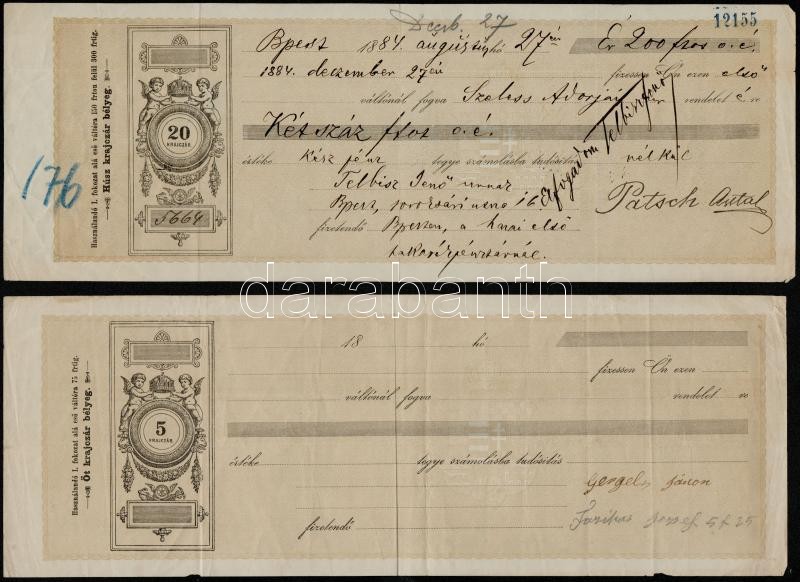 Dczb. 27
12155
Bpest 1884 augusztus hó 27én Ér 200 frot o. é.
1884. deczember 27én fizessen Ön ezen első
váltónál fogva Szeless Adorján rendelet é re
Két száz frtot o. é.
értéke kész pénz tegye számolásba tudósítás nélkül
Telbisz Jenő urnak
Bpest, soroksári utcza 16.
fizetendő Bpesten, a hazai első
takarékpénztárnál.
Elfogadom Telbisz Jenő
Patsch Antal
Használandó I. fokozat alá eső váltóra 150 frton felül 300 frtig.
Húsz krajczár bélyeg.
20
KRAJCZÁR
5664
176
darabanth
18 hó
fizessen Ön ezen
váltónál fogva rendelet re
értéke tegye számolásba tudósítás
fizetendő
Gergely János
Farkas József 5f 25
Használandó I. fokozat alá eső váltóra 75 frtig.
Öt krajczár bélyeg.
5
KRAJCZÁR